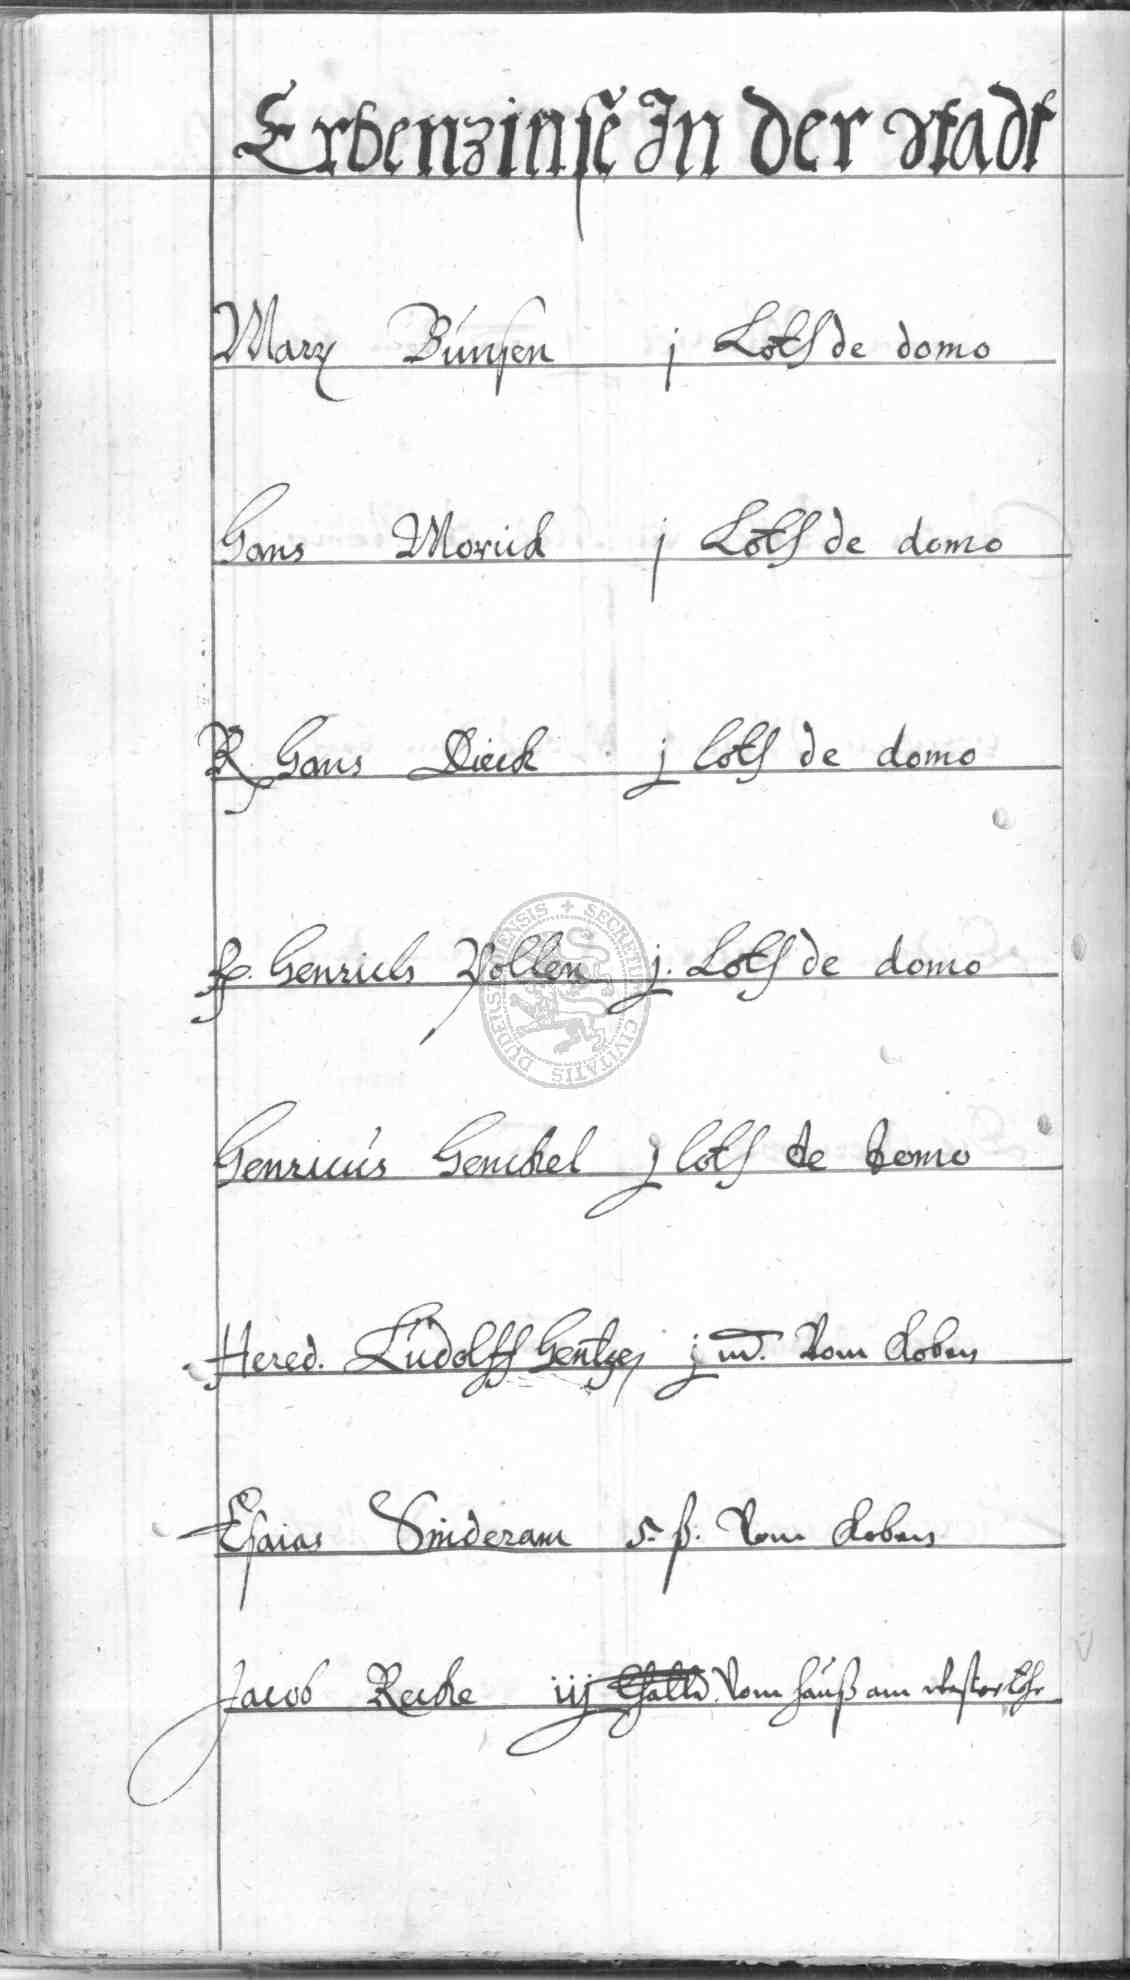 Erbenzinse In der Stadt
Marx Bunsen j Loth de domo
Hans Morick j Loth de domo
R. Hans Dieck j loth de domo
Henrich Pollen j. Loth de domo
Henricus Henckel j loth de domo
Hered. Ludolff Hentzen j m. Vom Koben
Esaias Sinderam 5. ß. Vom Koben
Jacob Recke iij Vom Hauß am
SECRETUM CIVITATIS DUDERSTADENSIS